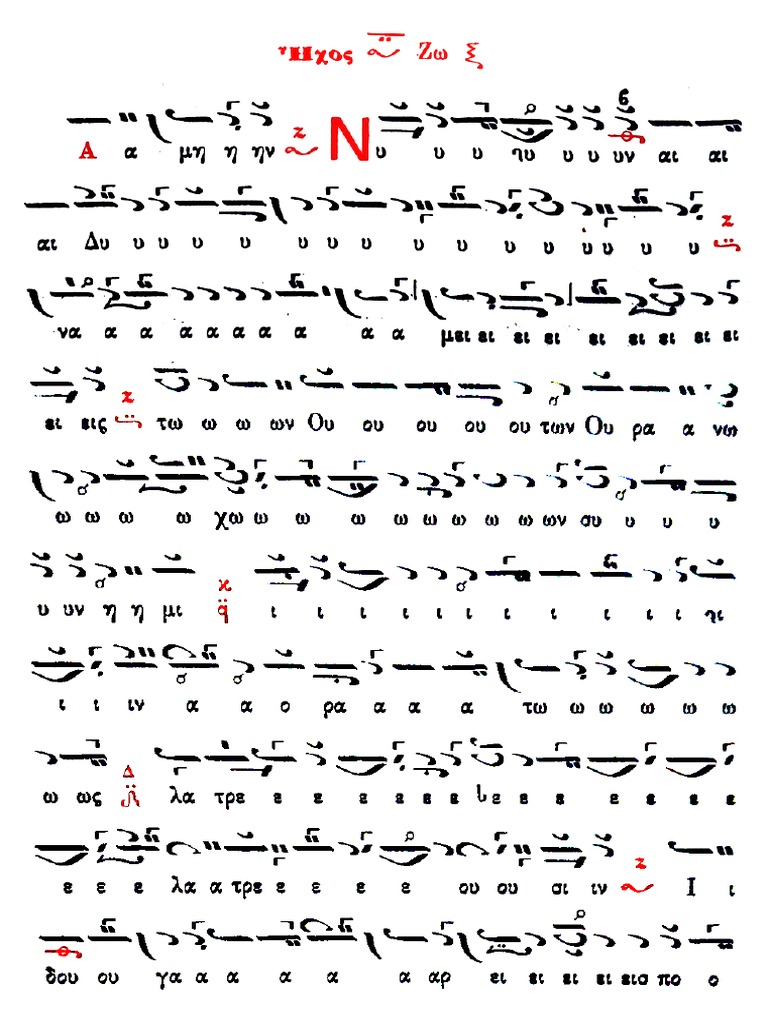 Ἦχος Ζω ξ
Α α μη η ην Ν υ υ υ υ υ υ υν αι αι
αι Δυ υ υ υ υ υ υ υ υ υ υ υ υ υ υ
να α α α α α α α α α μει ει ει ει ει ει ει ει ει
ει εις τω ω ω ων Ου ου ου ου ου των Ου ρα α νω
ω ω ω ω χω ω ω ω ω ω ω ω ω ων συ υ υ υ
υ υν η η μι ι ι ι ι ι ι ι ι ι ι ι
ι ι ιν α α ο ρα α α α τω ω ω ω ω ω
ω ως λα τρε ε ε ε ε ε ε ε ε ε ε ε ε
ε ε ε λα α τρε ε ε ε ε ε ου ου σι ιν Ι ι
δου ου γα α α α α α αρ ει ει ει ει εισ πο ο